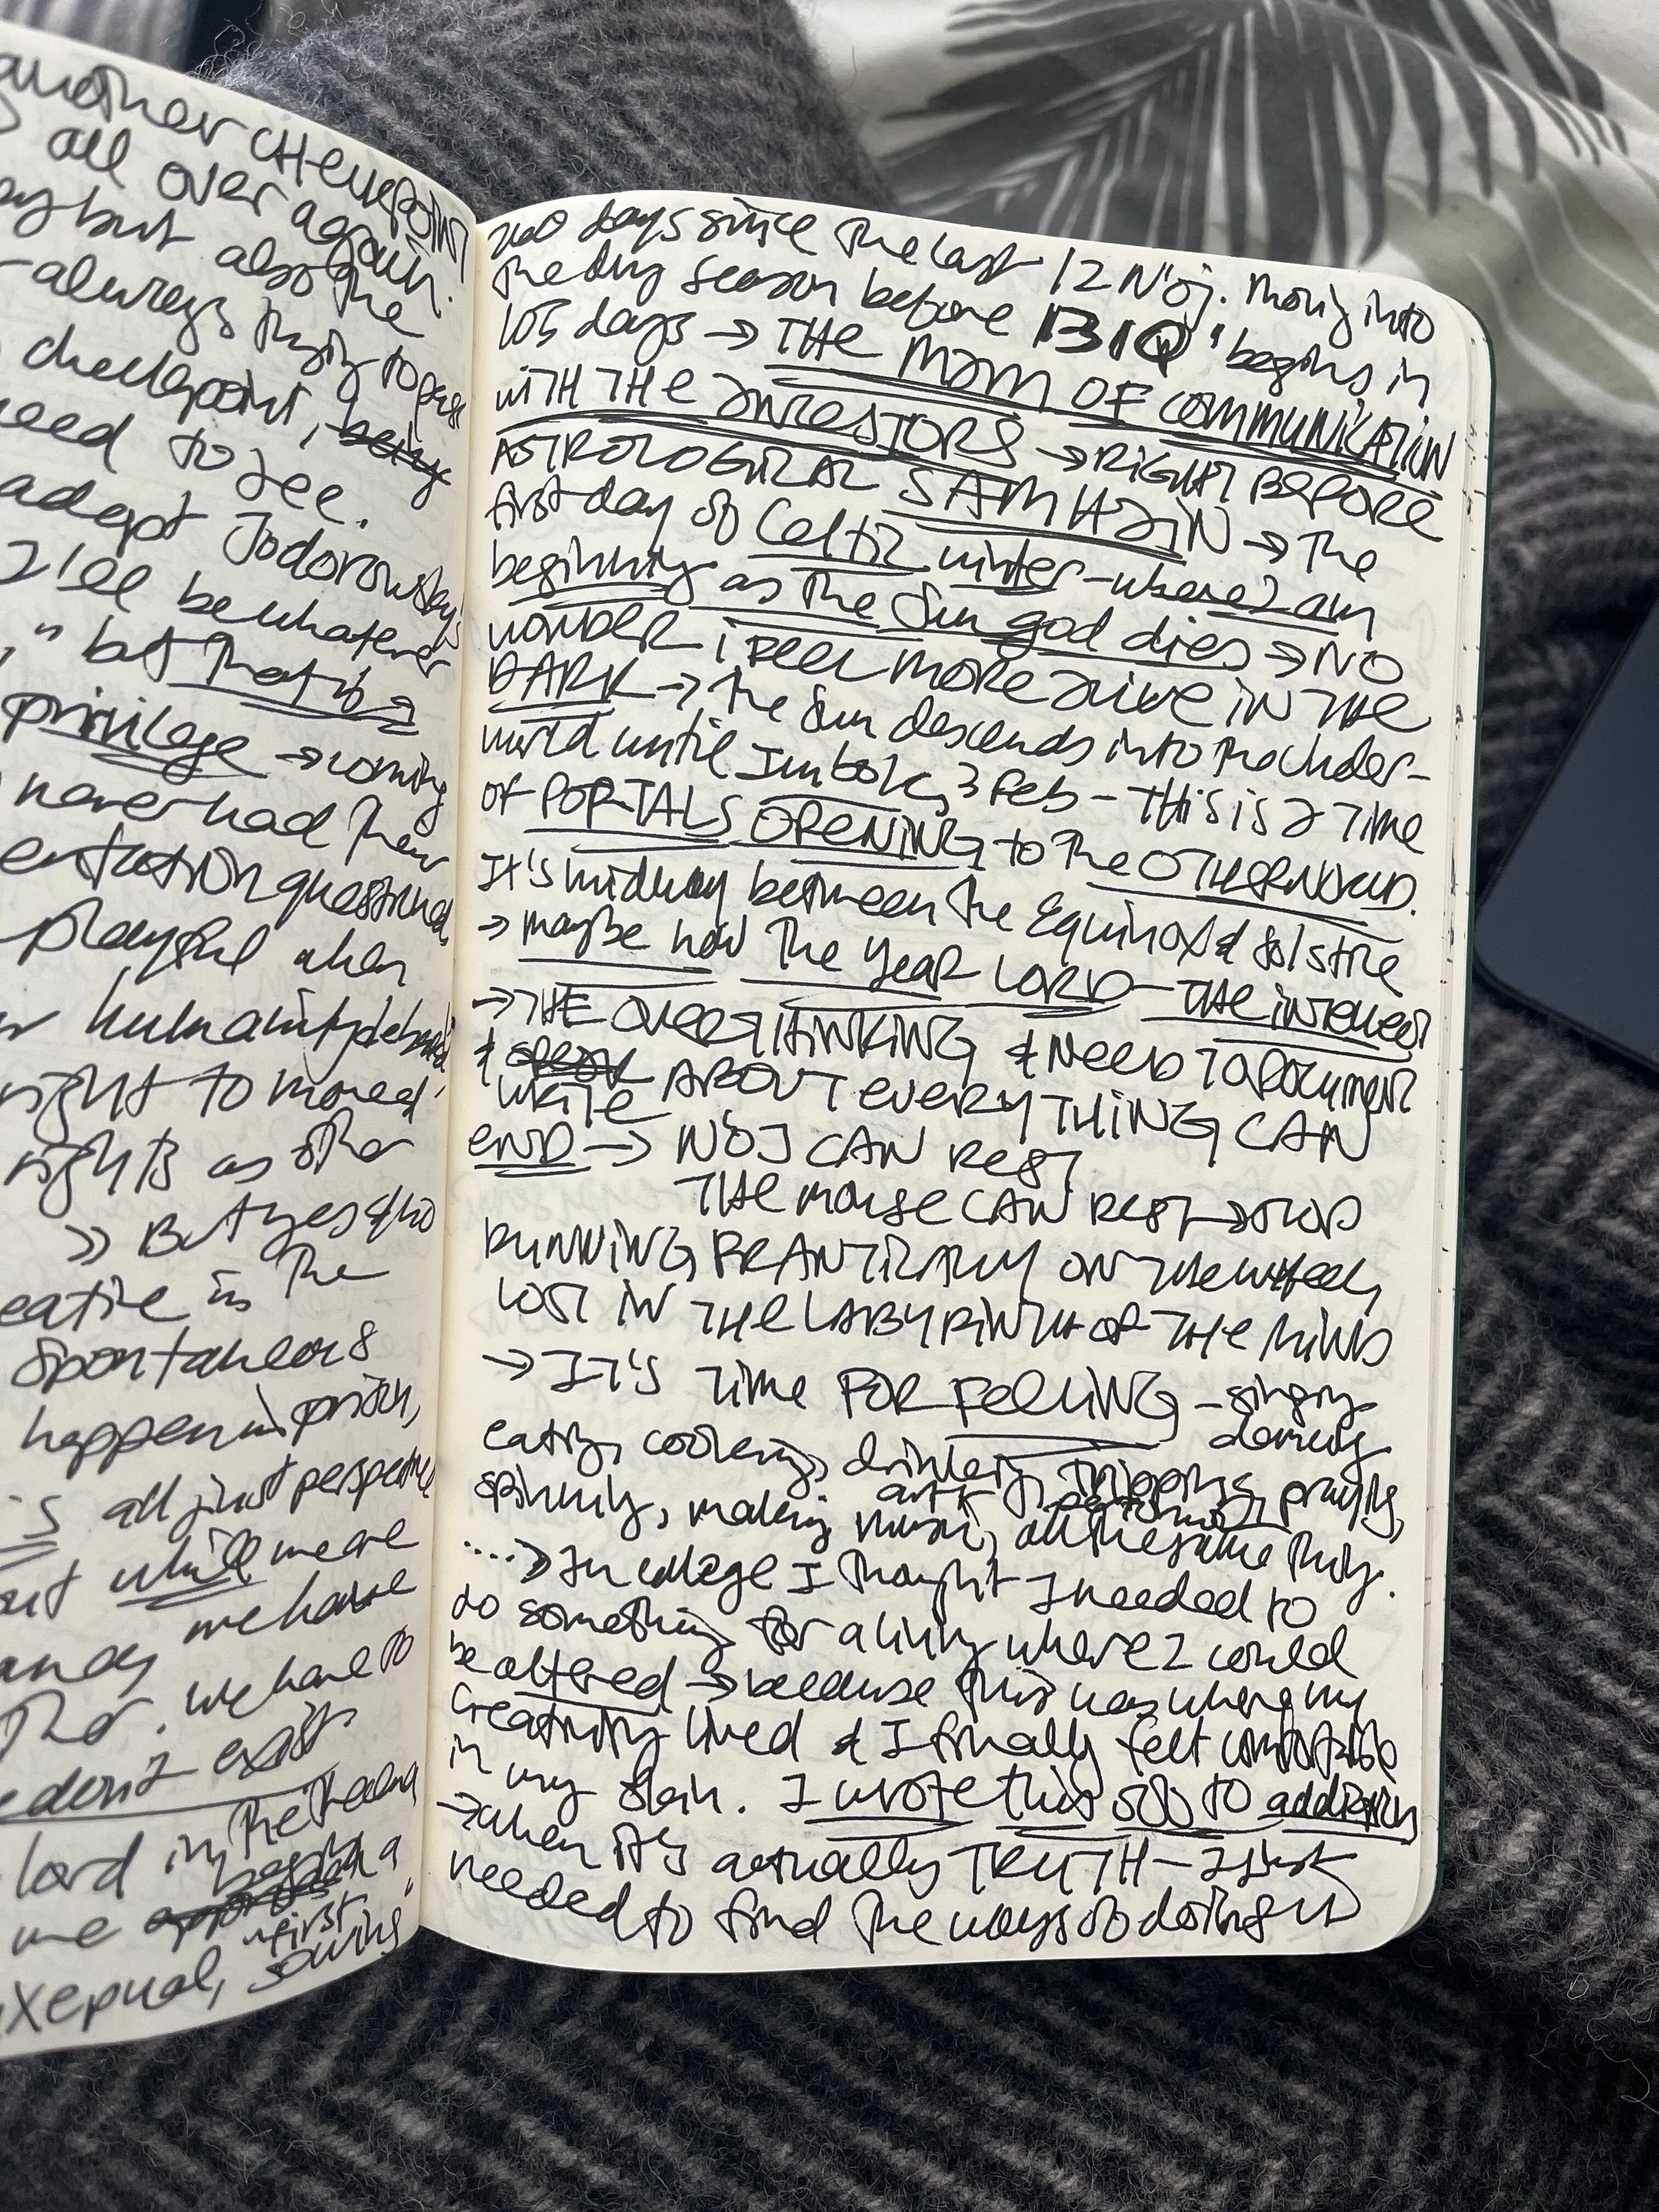 another CHECKPOINT
all over again.
but also the
-always trying to pass
checkpoint, being
need to see.
adopt Jodorowsky's
I'll be whatever
," but that is a
privilege → coming
never had their
questioned,
playful when
humanity
right to moved
rights as other
→ But yes also
in the
spontaneous
happen in prison,
is all just perspective
but while we are
we have
. we have to
don't exist
lord in the
begin a
me
"first
sowing"
260 days since the last 12 N'oj. Moving into
the dry season before 13 IQ' begins in
105 days → THE MAM OF COMMUNICATION
WITH THE ANCESTORS → RIGHT BEFORE
ASTROLOGICAL SAMHAIN → The
first day of Celtic winter - where I am
beginning as the Sun god dies → NO
WONDER I FEEL MORE ALIVE IN THE
DARK → the Sun descends into the Under-
world until Imbolc, 3 Feb - THIS IS A TIME
OF PORTALS OPENING to the OTHERWORLD.
It's midway between the Equinox & Solstice
→ maybe now the Year LORD - THE INTELLECT
→ THE OVERTHINKING & NEED TO DOCUMENT
& SPEAK
WRITE ABOUT EVERYTHING CAN
END → NOJ CAN REST
THE MOUSE CAN REST → STOP
RUNNING FRANTICALLY ON THE WHEEL,
LOST IN THE LABYRINTH OF THE MIND
→ IT'S TIME FOR FEELING - singing
dancing
eating, cooking, drinking, tripping, praying,
art
spinning, making music, all the same thing.
....→ In college I thought I needed to
do something for a living where I could
be altered → because this was where my
creativity lived & I finally felt comfortable
in my skin. I wrote this off to addiction
→ when it's actually TRUTH - I just
needed to find the ways of doing it